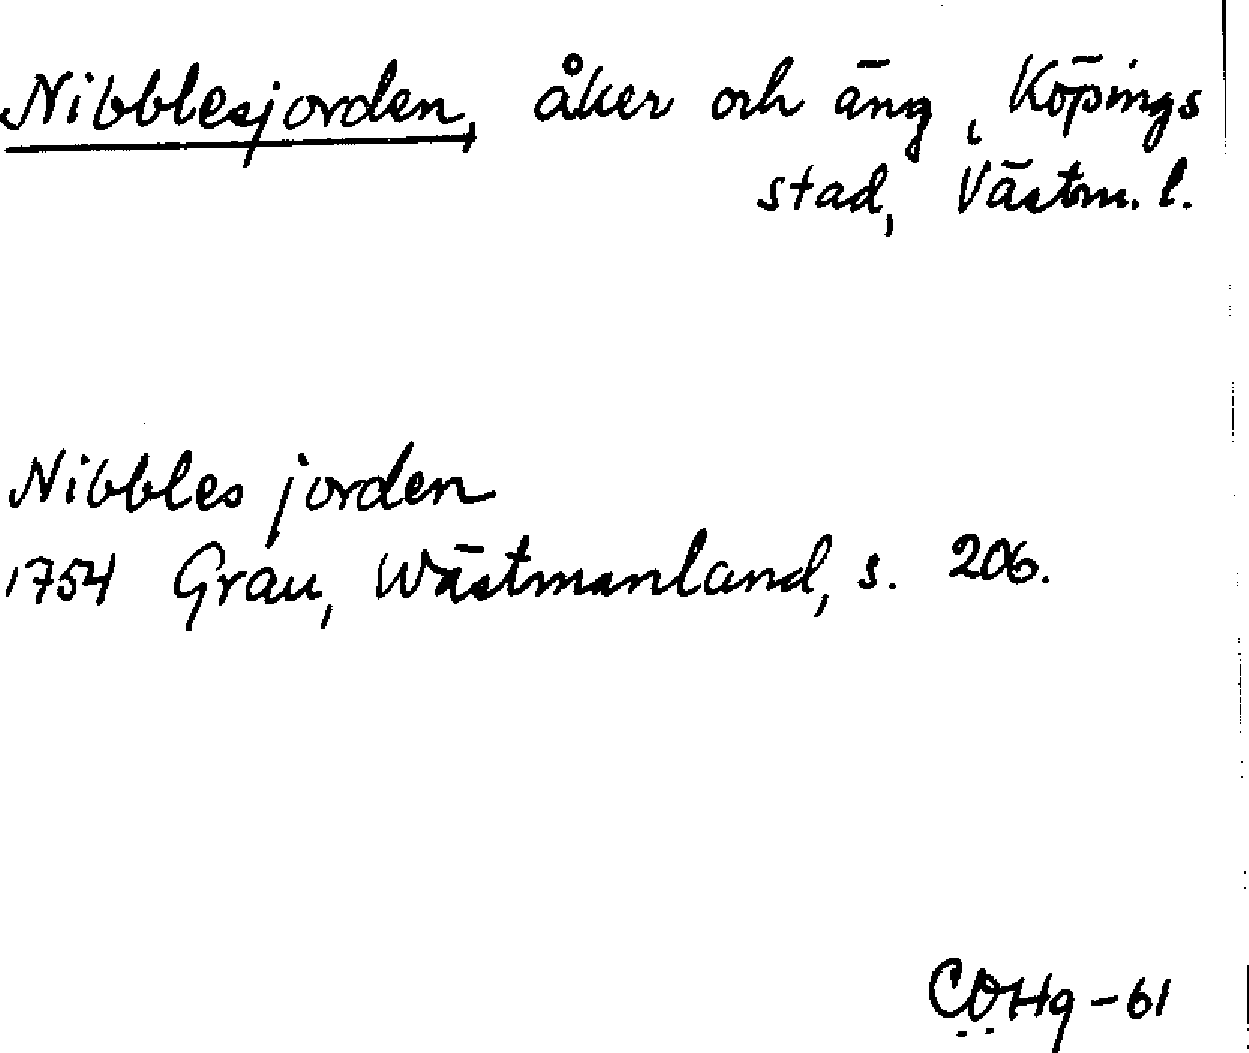 Nibblesjorden, åker och äng, Köpings
stad, Västm. l.
Nibbles jorden
1754 Grau, Wästmanland, s. 206.
CÖHg-61